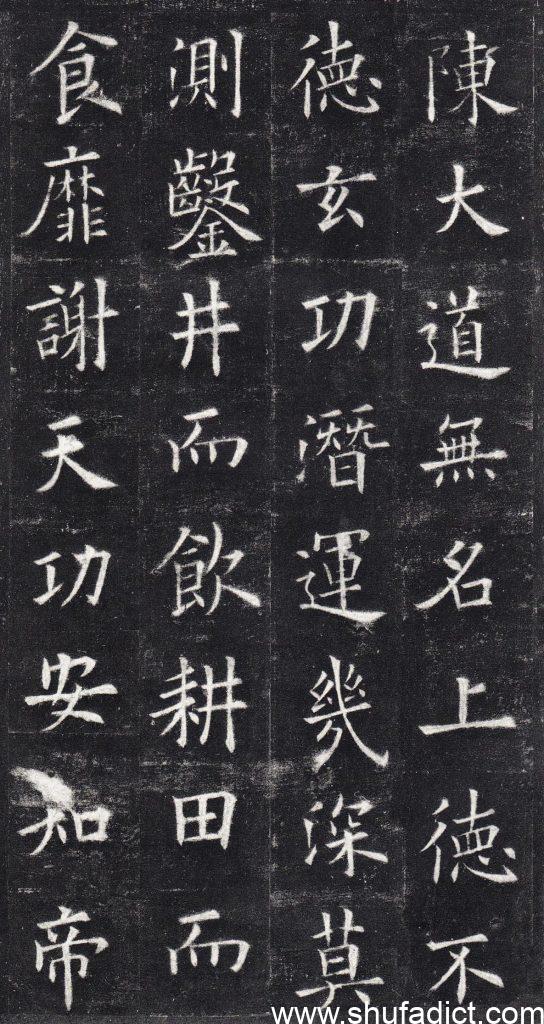 陳大道無名上徳不
徳玄功潛運幾深莫
測鑿井而飲耕田而
食靡謝天功安知帝
www.shufadict.com